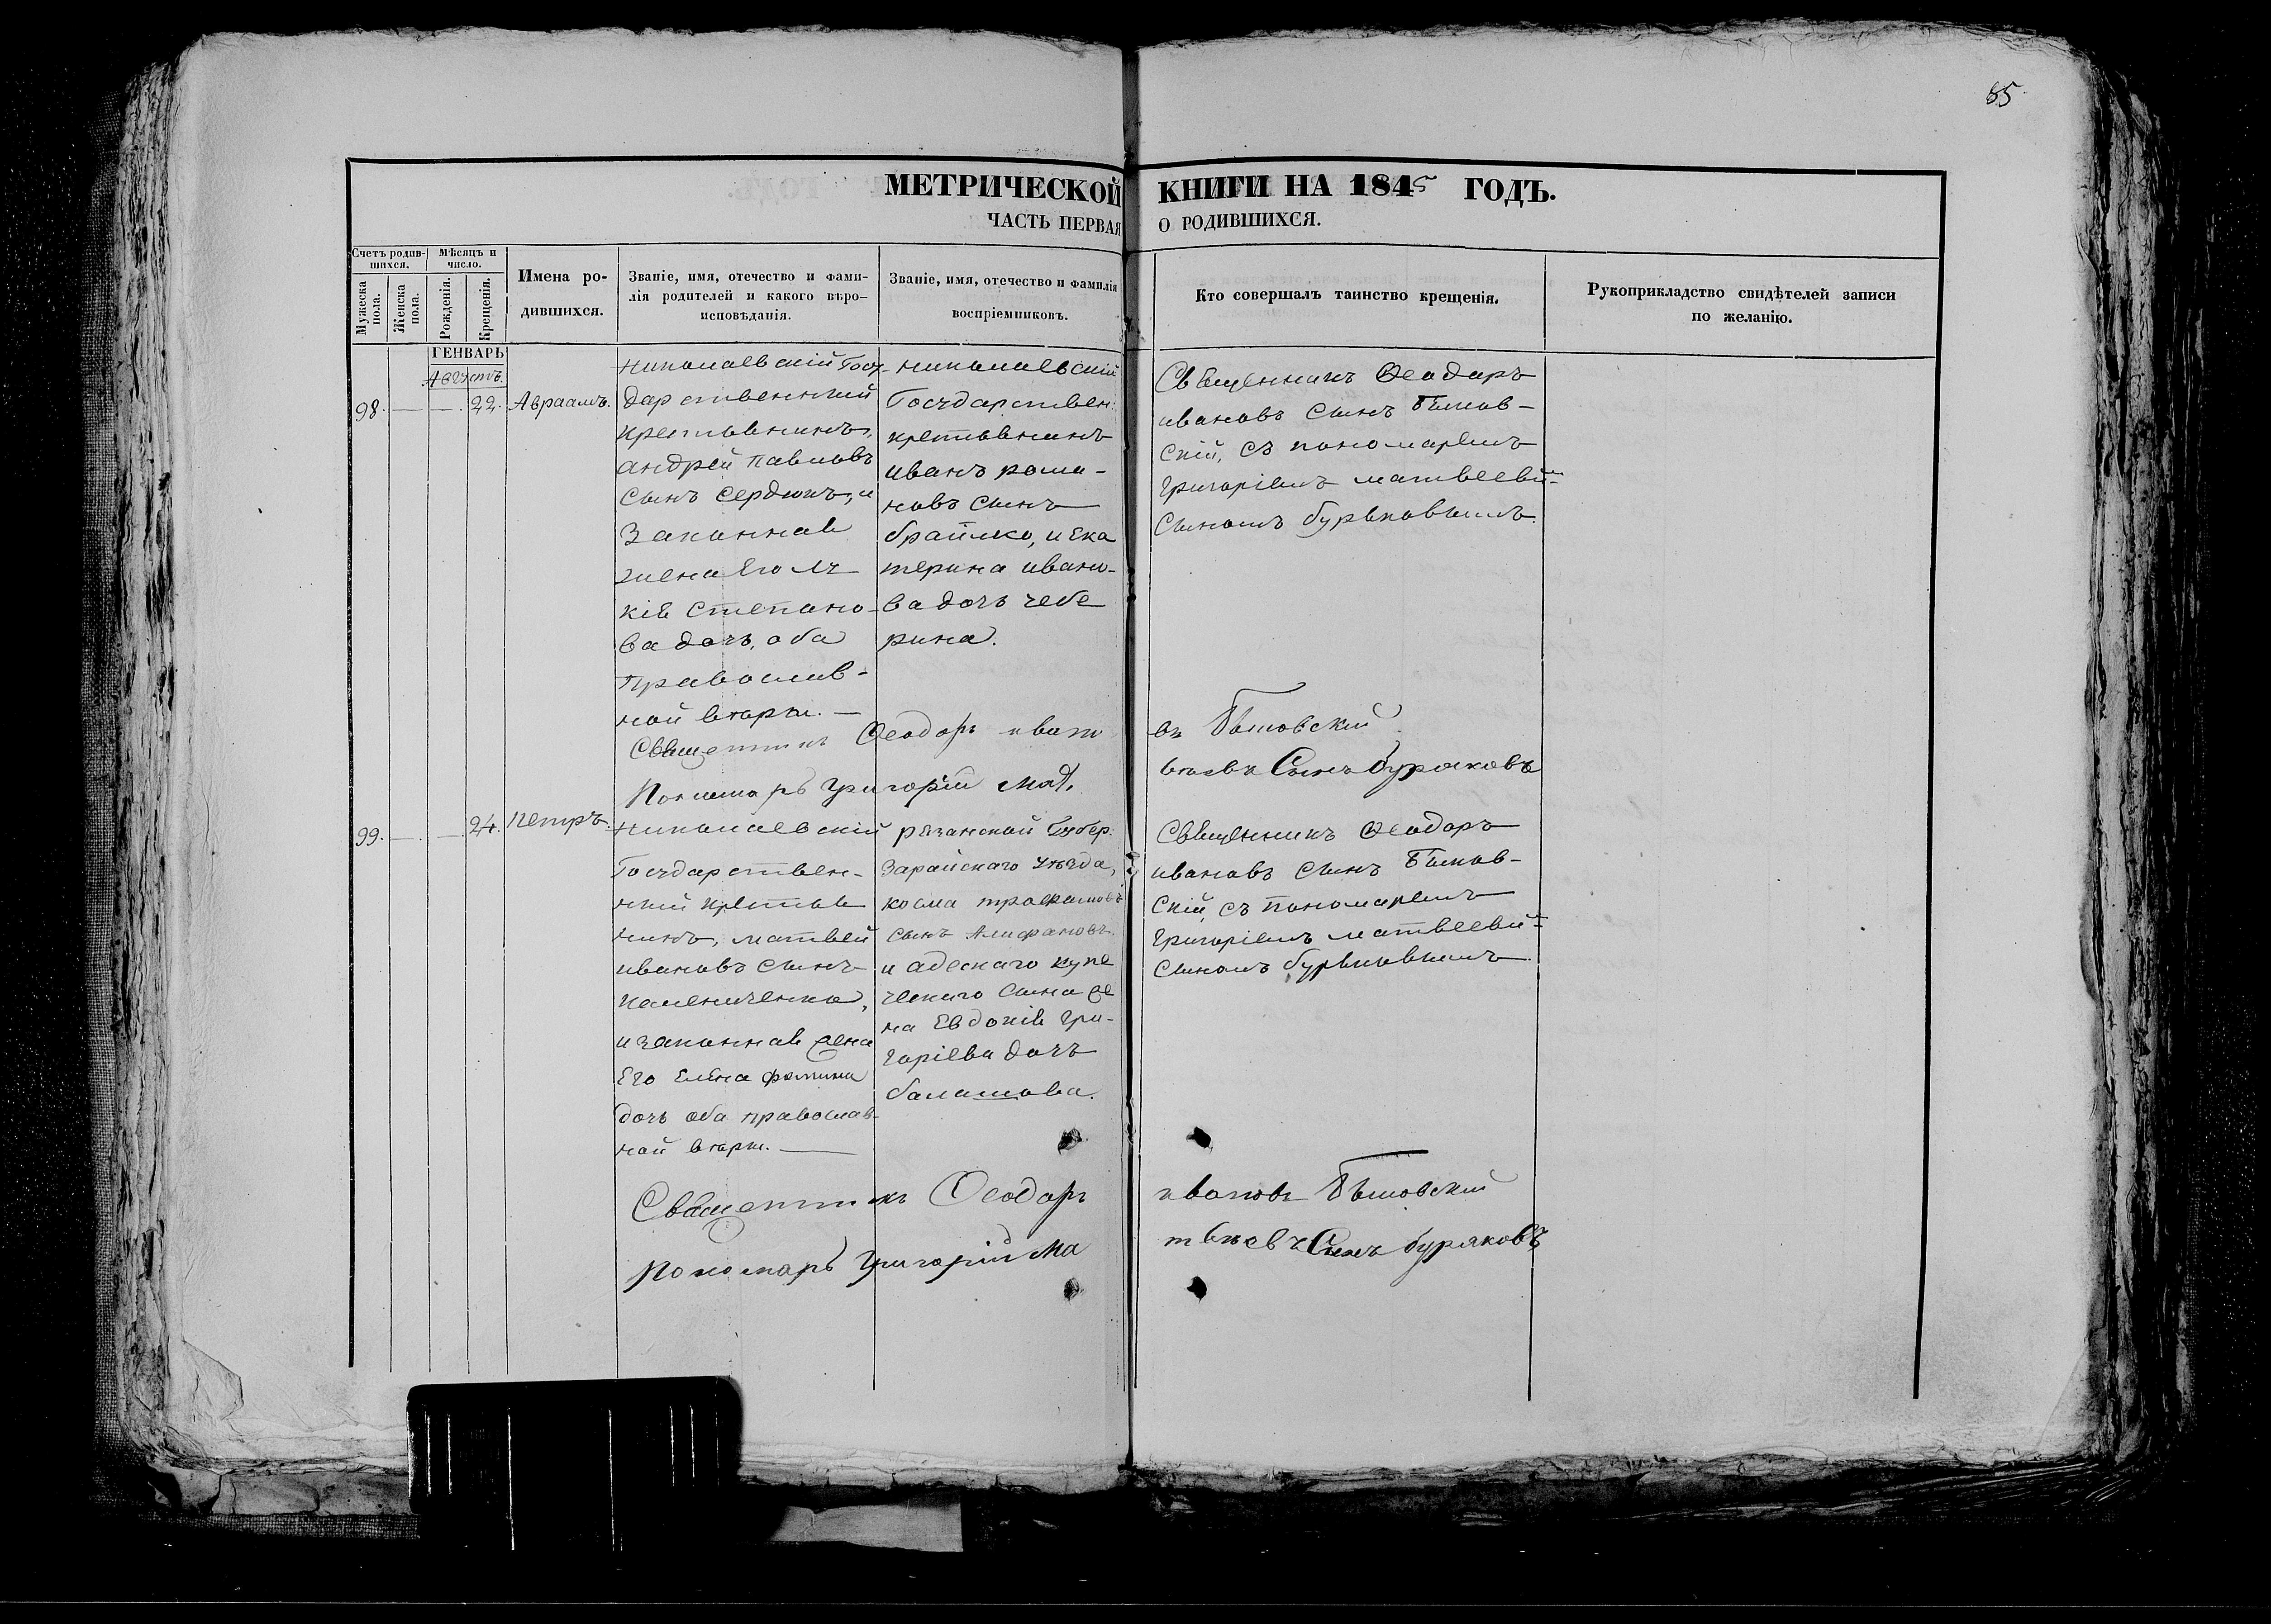 85
МЕТРИЧЕСКОЙ КНИГИ НА 1845 ГОДЪ.
ЧАСТЬ ПЕРВАЯ О РОДИВШИХСЯ.
Счетъ родив-
шихся.
Мужеска пола.
Женска пола.
Мѣсяцъ и
число.
Рожденія.
Крещенія.
Имена ро-
дившихся.
Званіе, имя, отечество и фами-
лія родителей и какого вѣро-
исповѣданія.
Званіе, имя, отечество и фамилія
воспріемниковъ.
Кто совершалъ таинство крещенія.
Рукоприкладство свидѣтелей записи
по желанію.
ГЕНВАРЬ
Августъ.
98. — — 22. Авраамъ.
николаевскій Госу-
дарственный
крестьянинъ,
андрей павловъ
сынъ сердюкъ, и
законная
жена его
степано-
ва дочь, оба
православ-
ной вѣры. —
николаевскій
Государствен:
крестьянинъ
иванъ рома-
новъ сынъ
и ека
терина ивано-
ва дочь чебе
рина.
Священникъ Ѳеодоръ
ивановъ сынъ
скій, съ пономаремъ
григоріемъ матвеевы-
сыномъ буряковымъ.
Священникъ Ѳеодоръ ивано въ
Пономарь Григорій Мат. вѣевъ Сынъ буряковъ
99. — — 24. петръ.
николаевскій
Государствен-
ный крестья
нинъ, матвей
ивановъ сынъ
каменченко,
и законная жена
Его Елена фомина
дочь оба православ-
ной вѣры. —
рязанской Губер:
Зарайскаго уѣзда,
косма
сынъ Алифановъ.
и адескаго купе
ческаго сына же
на Евдокія гри-
горіева дочь
балашова.
Священникъ Ѳеодоръ
ивановъ сынъ
скій, съ пономаремъ
григоріемъ матвеевы-
сыномъ буряковымъ.
Священникъ Ѳеодоръ ивановъ
Пономарь Григорій Ма твѣевъ Сынъ буряковъ